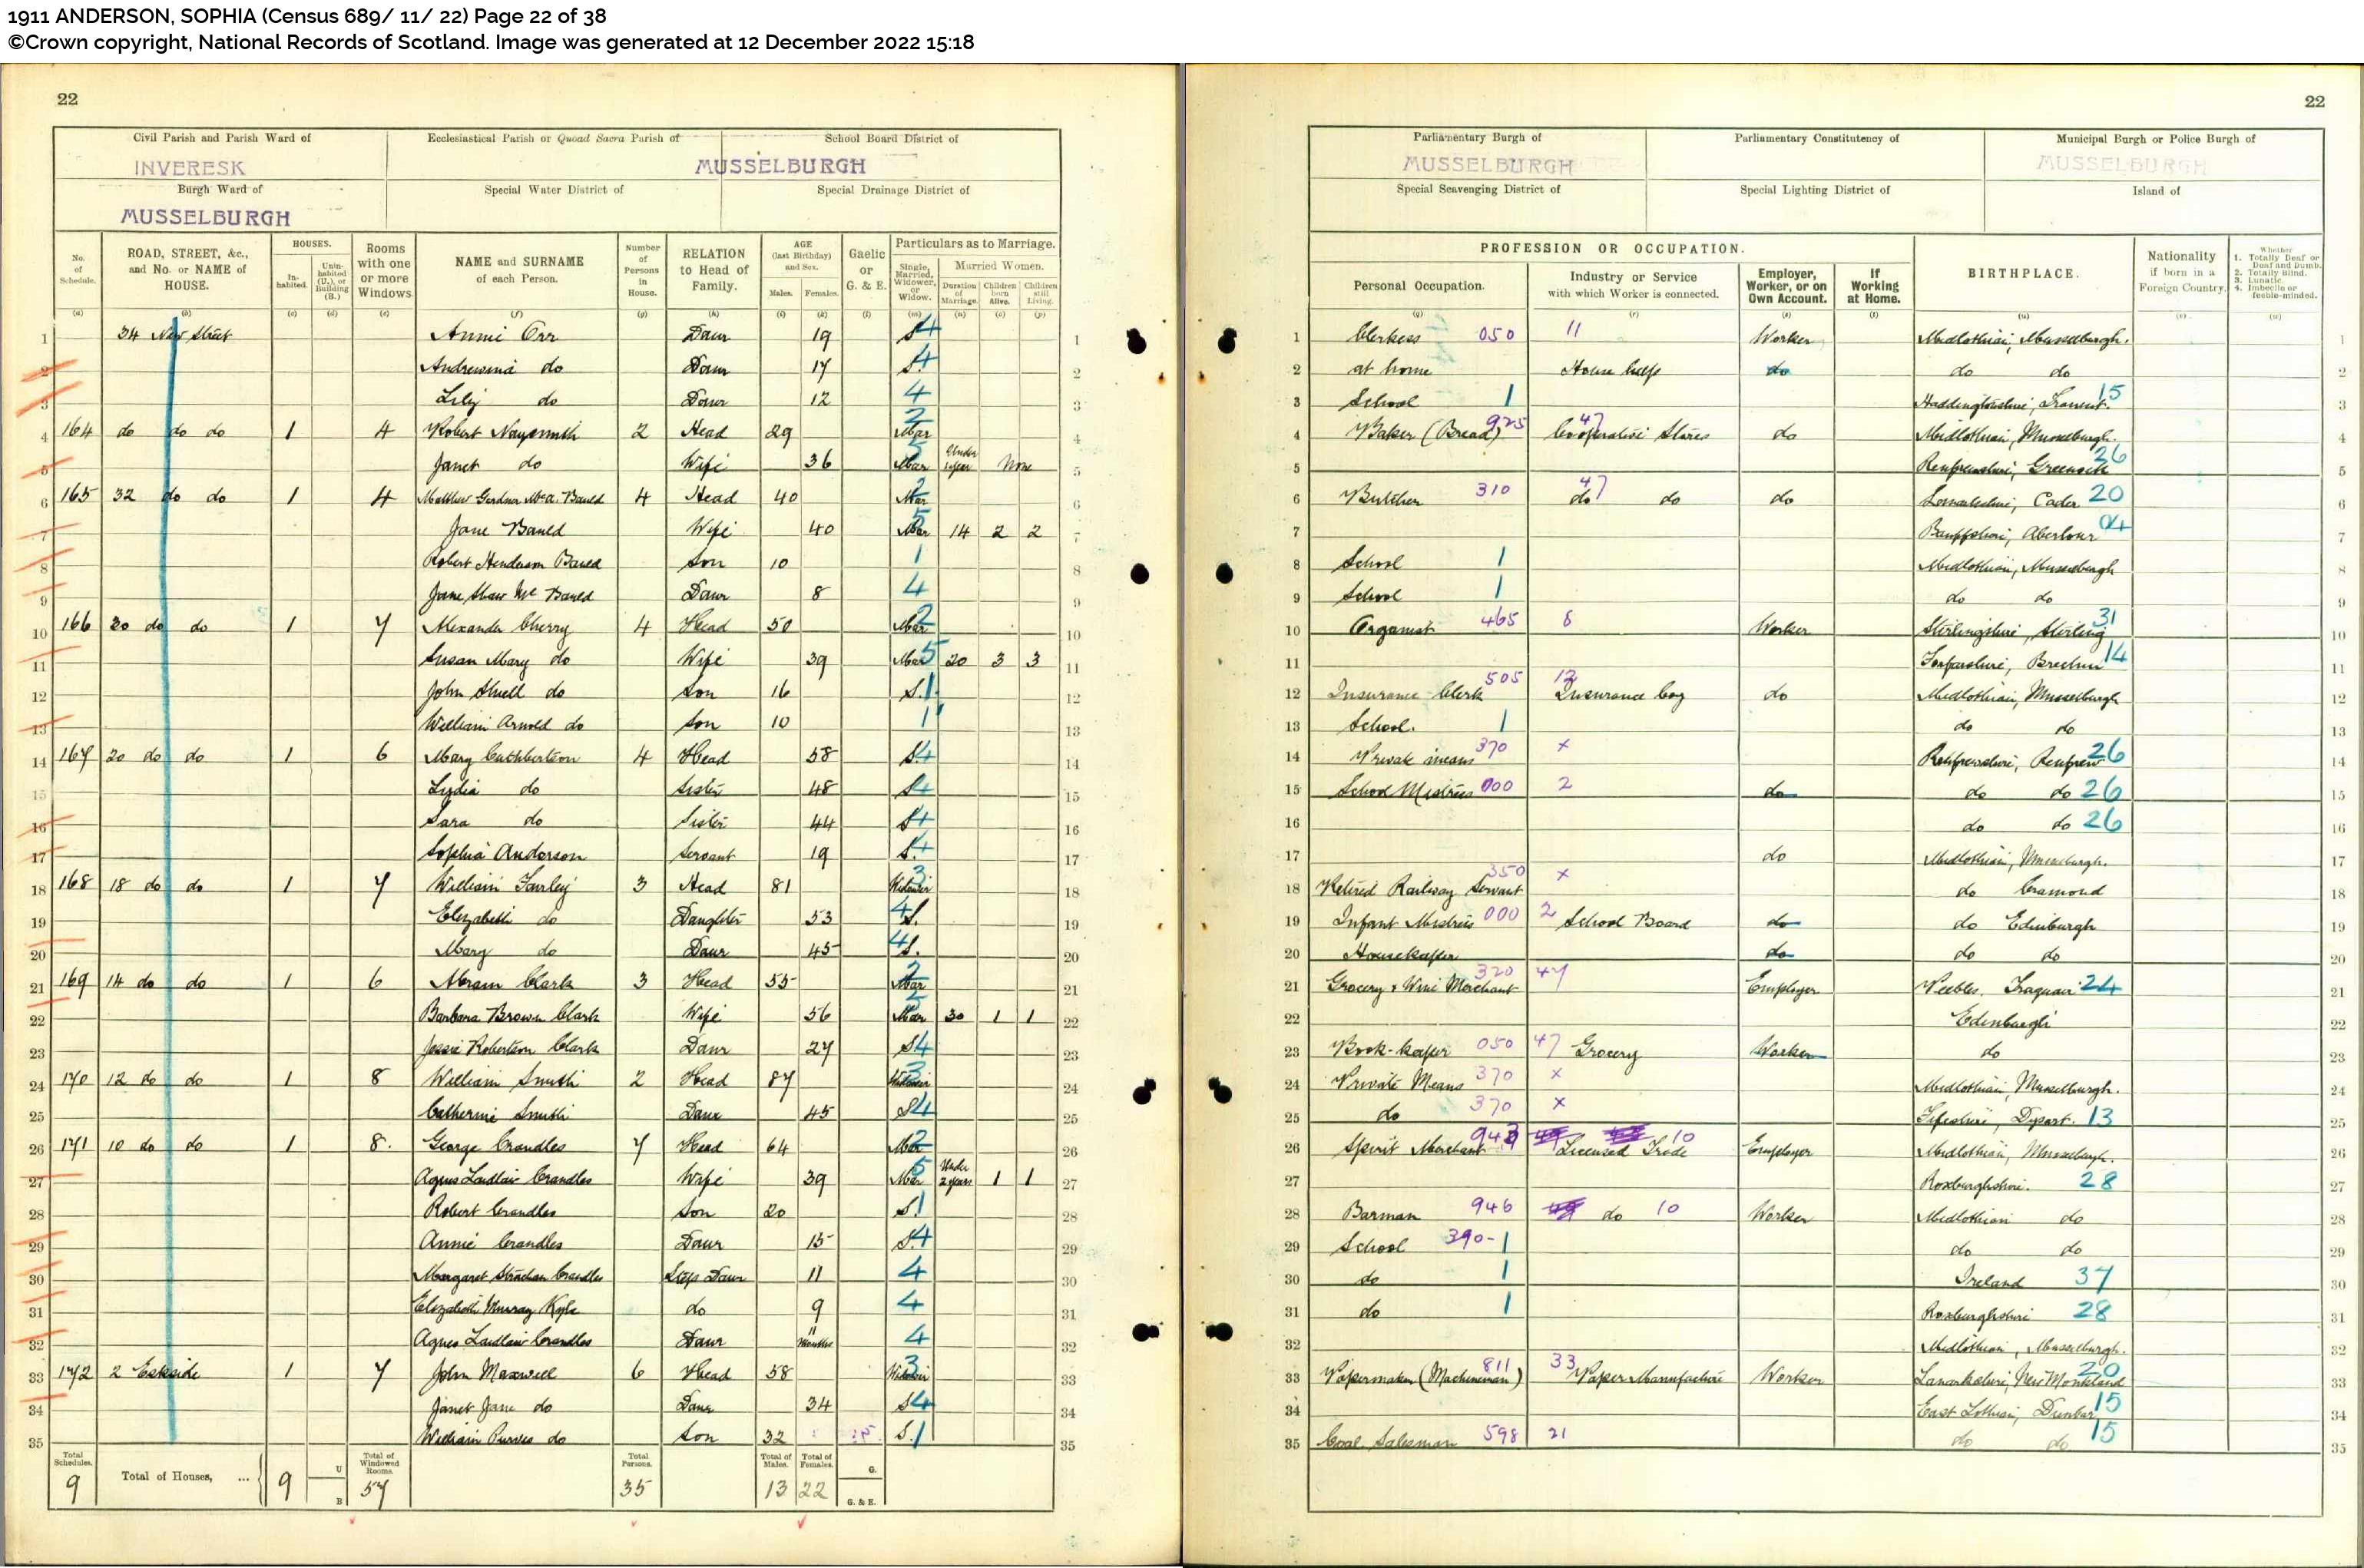 1911 ANDERSON, SOPHIA (Census 689/ 11/ 22) Page 22 of 38
©Crown copyright, National Records of Scotland. Image was generated at 12 December 2022 15:18
22
Civil Parish and Parish Ward of Ecclesiastical Parish or Quoad Sacra Parish of School Board District of
INVERESK MUSSELBURGH
Burgh Ward of Special Water District of Special Drainage District of
MUSSELBURGH
No. of Schedule. ROAD, STREET, &c., and No. or NAME of HOUSE. HOUSES. Inhabited. Uninhabited (U.), or Building (B.) Rooms with one or more Windows NAME and SURNAME of each Person. Number of Persons in House. RELATION to Head of Family. AGE (last Birthday) and Sex. Males. Females. Gaelic or G. & E. Particulars as to Marriage. Single, Married, Widower, or Widow. Married Women. Duration of Marriage. Children born Alive. Children still Living.
(a) (b) (c) (d) (e) (f) (g) (h) (i) (k) (l) (m) (n) (o) (p)
1 34 New Street Annie Orr Daur 19 S 4 1
2 Andrewina do Daur 17 S 4 2
3 Lily do Daur 12 4 3
4 164 do do do 1 4 Robert Naysmith 2 Head 29 Mar 2 4
5 Janet do Wife 36 Mar 5 Under 1 year None 5
6 165 32 do do 1 4 Matthew Gardner Bauld 4 Head 40 Mar 2 6
7 Jane Bauld Wife 40 Mar 5 14 2 2 7
8 Robert Henderson Bauld Son 10 1 8
9 Jane Shaw Mc Bauld Daur 8 4 9
10 166 30 do do 1 7 Alexander Cherry 4 Head 50 Mar 2 10
11 Susan Mary do Wife 39 Mar 5 20 3 3 11
12 John Shiell do Son 16 S. 1 12
13 William Arnold do Son 10 1 13
14 167 20 do do 1 6 Mary Cuthbertson 4 Head 58 S 4 14
15 Lydia do Sister 48 S 4 15
16 Sara do Sister 44 S 4 16
17 Sophia Anderson Servant 19 S. 4 17
18 168 18 do do 1 7 William Fairley 3 Head 81 Widower 3 18
19 Elizabeth do Daughter 53 4 S. 19
20 Mary do Daur 45 4 S. 20
21 169 14 do do 1 6 Abram Clark 3 Head 55 Mar 2 21
22 Barbara Brown Clark Wife 56 Mar 5 30 1 1 22
23 Jessie Robertson Clark Daur 27 S 4 23
24 170 12 do do 1 8 William Smith 2 Head 87 Widower 3 24
25 Catherine Smith Daur 45 S 4 25
26 171 10 do do 1 8. George Crandles 7 Head 64 Mar 2 26
27 Agnes Laidlaw Crandles Wife 39 Mar 5 Under 2 years 1 1 27
28 Robert Crandles Son 20 S 1 28
29 Annie Crandles Daur 15 S. 4 29
30 Margaret Strachan Crandles Step Daur 11 4 30
31 Elizabeth Murray Kyle do 9 4 31
32 Agnes Laidlaw Crandles Daur 11 Months 4 32
33 172 2 Eskside 1 7 John Maxwell 6 Head 58 Widower 3 33
34 Janet Jane do Daur 34 S 4 34
35 William Purves do Son 32 S. 1 35
Total Schedules. 9 Total of Houses, ... 9 U B Total of Windowed Rooms. 57 Total Persons. 35 Total of Males. 13 Total of Females. 22 G. G. & E.
22
Parliamentary Burgh of Parliamentary Constitutency of Municipal Burgh or Police Burgh of
MUSSELBURGH MUSSELBURGH
Special Scavenging District of Special Lighting District of Island of
PROFESSION OR OCCUPATION. BIRTHPLACE. Nationality if born in a Foreign Country. Whether 1. Totally Deaf or Deaf and Dumb. 2. Totally Blind. 3. Lunatic. 4. Imbecile or feeble-minded.
Personal Occupation. Industry or Service with which Worker is connected. Employer, Worker, or on Own Account. If Working at Home.
(q) (r) (s) (t) (u) (v) (w)
1 Clerkess 050 11 Worker Midlothian, Musselburgh. 1
2 at home House help do do do 2
3 School 1 Haddingtonshire, Tranent. 15 3
4 Baker (Bread) 925 47 Cooperative Stores do Midlothian, Musselburgh. 4
5 Renfrewshire, Greenock 26 5
6 Butcher 310 47 do do do Lanarkshire, Cader 20 6
7 Banffshire, Aberlour 04 7
8 School 1 Midlothian, Musselburgh 8
9 School 1 do do 9
10 Organist 465 8 Worker Stirlingshire, Stirling 31 10
11 Forfarshire, Brechin 14 11
12 Insurance Clerk 505 12 Insurance Coy do Midlothian, Musselburgh 12
13 School. 1 do do 13
14 Private means 370 x Renfrewshire, Renfrew 26 14
15 School Mistress 000 2 do do do 26 15
16 do do 26 16
17 do Midlothian, Musselburgh. 17
18 Retired Railway Servant 350 x do Cramond 18
19 Infant Mistress 000 2 School Board do do Edinburgh 19
20 Housekeeper do do do 20
21 Grocery & Wine Merchant 320 47 Employer Peebles. Traquair 24 21
22 Edinburgh 22
23 Book-keeper 050 47 Grocery Worker do 23
24 Private Means 370 x Midlothian, Musselburgh. 24
25 do 370 x Fifeshire, Dysart. 13 25
26 Spirit Merchant 10 Licensed Trade Employer Midlothian, Musselburgh. 26
27 Roxburghshire. 28 27
28 Barman 946 do 10 Worker Midlothian do 28
29 School 390- 1 do do 29
30 do 1 Ireland 37 30
31 do 1 Roxburghshire 28 31
32 Midlothian, Musselburgh. 32
33 Papermaker (Machineman) 811 33 Paper Manufacture Worker Lanarkshire, New Monkland 20 33
34 East Lothian, Dunbar 15 34
35 Coal Salesman 598 21 do do 15 35